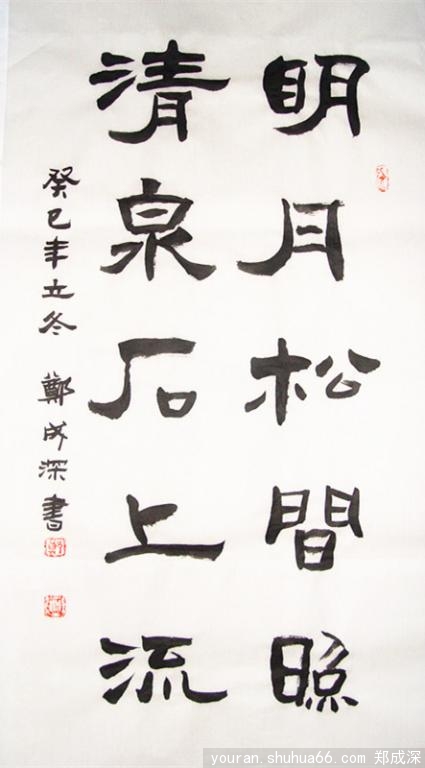 明月松間照
清泉石上流
癸巳年立冬 鄭成深書
youran.shuhua66.com 郑成深